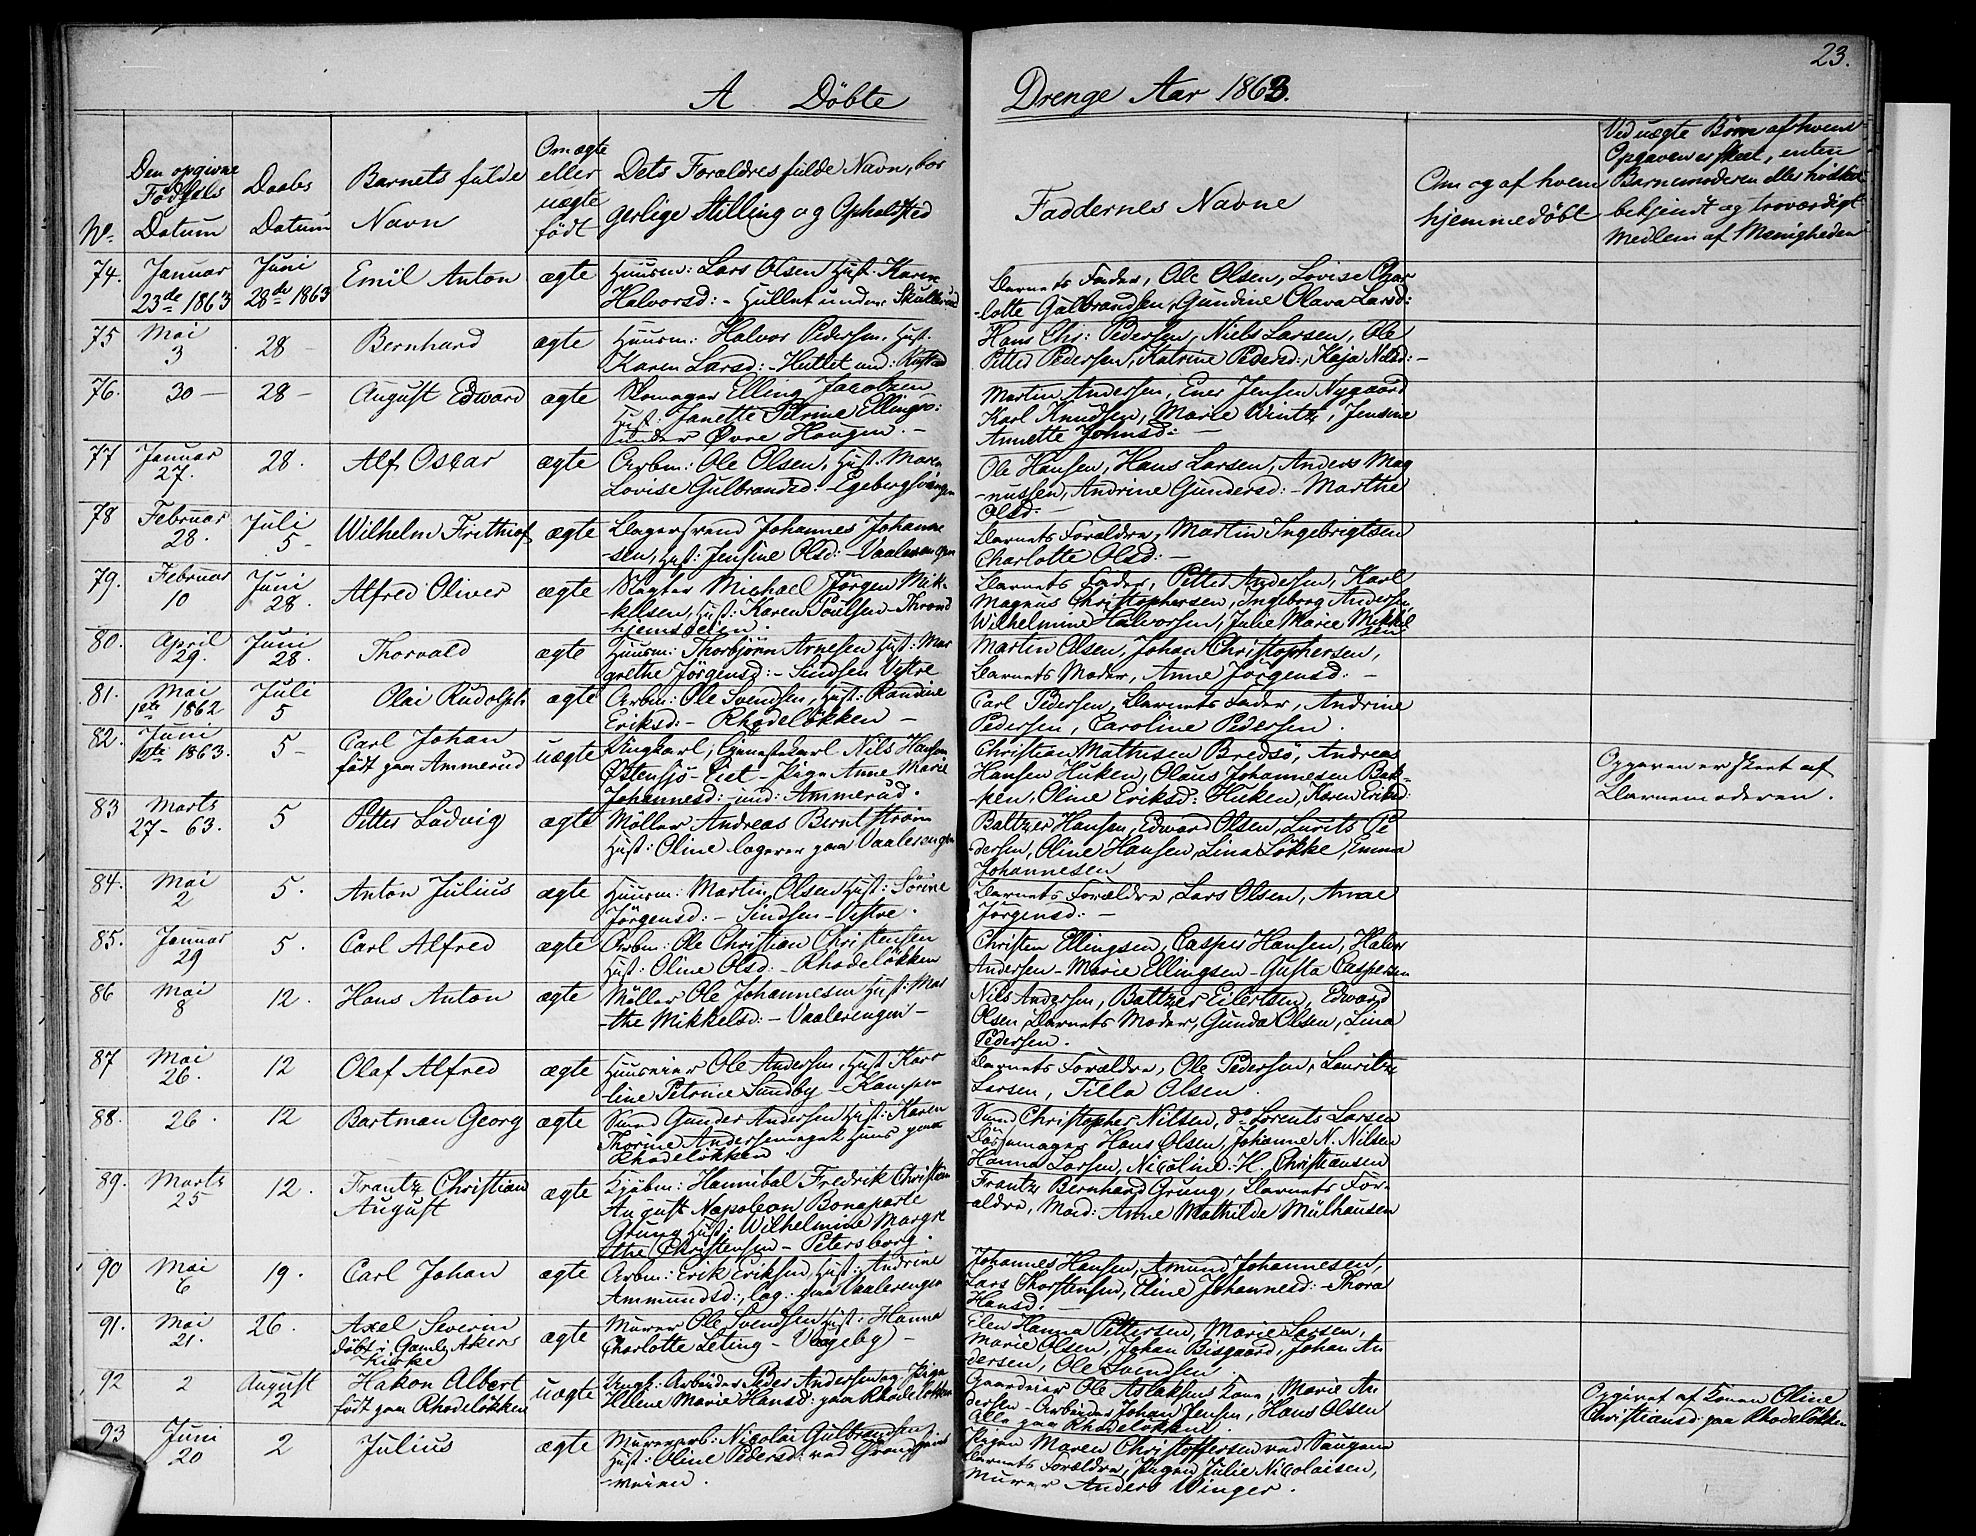 23.
A Döbte Drenge Aar 1863.
No. Den opgivne Fødsels Datum Daabs Datum Barnets fulde Navn Om ægte eller uægte født Dets Forældres fulde Navn, borgerlige Stilling og Opholdsted Faddernes Navne Om og af hvem hjemmedöbt Ved uægte Børn af hvem Opgaven er skeet, enten Barnemoderen eller hvilket bekjendt og troværdigt Medlem af Menigheden
74. Januar 23de 1863 Juni 28de 1863 Emil Anton ægte Huusm: Lars Olsen Hust: Karen
Halvorsd: - Hullet under Skullerud
Barnets Fader, Ole Olsen, Lovise Char-
lotte Gulbrandsen, Gundine Olava Larsd:
75 Mai 3 28 - Bernhard ægte Huusm: Halvor Pedersen, Hust.
Karen Larsd: - Hullet und:
Hans Chr: Pedersen, Niels Larsen, Ole
Petter Pedersen, Katrine Pedersd:, Kaja Nilsd: -
76. 30 - 28 - August Edvard ægte Skomager Elling Jacobsen
Hust: Janette Petrine Ellings:
under Øvre Haugen. -
Martin Andersen, Ener Jensen Nygaard
Karl Knudsen, Marie Wintz, Jensine
Annette Johnsd: -
77 Januar 27. 28. Alf Oscar ægte Arbm: Ole Olsen, Hust: Maren
Lovise Gulbrandsd: Egebergløvangen
Ole Hansen, Hans Larsen, Anders Mag
-nussen, Andrine Gundersd: - Marthe
Olsd: -
78 Februar 28. Juli 5 - Wilhelm Frithiof ægte Bagersvend Johannes Johanne
sen, Hust: Jensine Olsd: - Vaalerengen
Barnets Forældre, Martin Ingebrigtsen
Charlotte Olsd: -
79. Februar 10 Juni 28. Alfred Oliver ægte Slagter Michael Jörgen Mik-
kelsen, Hust: Karen Poulsen - Thrond
hjemsveien.
Barnets Fader, Petter Andersen, Karl
Magnus Christophersen, Ingeborg Andersen
Wilhelmine Halvorsen, Julie Marie Mikkel
sen
80. April 29. Juni 28. Thorvald ægte Huusm: Thorbjörn Arnesen Hust: Mar
grethe Jörgensd: - Sindsen Vestre
Martin Olsen, Johan Christophersen,
Barnets Moder, Anne Jörgensd: -
81. Mai 1ste 1862 Juli 5 Olai Rudolph ægte Arbm: Ole Svendsen, Hust: Randine
Eriksd: - Rhodeløkken -
Carl Pedersen, Barnets Fader, Andrine
Pedersen, Caroline Pedersen.
82. Juni 1863. 5 - Carl Johan
födt paa Ammerud uægte Ungkarl, Gjenestekarl Nils Hansen
Østensjö - Eiet - Pige Anne Marie
Johannesd: - und: Ammerud.
Christian Mathisen Bredsö, Andreas
Hansen Huken, Olaus Johannesen Bak-
ken, Oline Eriksd: Huken, Karen Eriksd:
Opgaven er skeet af
Barnemoderen.
83 Marts 27 - 63. 5 Petter Ludvig ægte Möller Andreas Berntström
Hust: Oline logerer paa Vaalerengen
Baltzer Hansen, Edvard Olsen, Laurits Pe
dersen, Oline Hansen, Lina Lökke, Emma
Johannesen
84. Mai 2 5. Anton Julius ægte Huusm: Martin Olsen Hust: Sörine
Jörgensd: - Sindsen - Vestre.
Barnets Forældre, Lars Olsen, Anne
Jörgensd: -
85. Januar 29 5. Carl Alfred ægte Arbm: Ole Christian Christensen
Hust: Oline Olsd: - Rhodeløkken
Christen Ellingsen, Casper Hansen, Halvor
Andersen - Marie Ellingsen - Gusta Caspersen
86 Mai 8 12. Hans Anton ægte Möller Ole Johannesen Hust: Mar
-the Mikkelsd: - Vaalerengen -
Nils Andersen, Baltzer Eilertsen, Edvard
Olsen Barnets Moder, Gunda Olsen, Lina
Pedersen.
87 Mai 26. 12 Olaf Alfred ægte Huuseier Ole Andersen, Hust: Karo
-line Petrine Sundby - Kampen
Barnets Forældre, Ole Pedersen, Lauritz
Larsen, Tilla Olsen.
88. 26. 12 Bartman Georg ægte Svend Gunder Andersen Hust: Karen
Thorine Andersen eget Huus paa
Rhodeløkken.
Svend Christopher Nilsen, do Lorents Larsen
Börsemager Hans Olsen, Johanne N. Nilsen
Hanna Larsen, Nicoline H. Christiansen
89. Marts 25 12. Frantz Christian
August ægte Kjöbm: Hannibal Fredrik Christian
August Napoleon Bonaparte
Grung Hust: Wilhelmine Margre
the Christensen - Petersborg.
Frantz Bernhard Grung, Barnets For-
ældre, Mad: Anne Mathilde Mülhausen
90 Mai 6 19. Carl Johan ægte Arbm: Erik Eriksen, Hust: Andrine
Ammundsd:, log: paa Vaalerengen
Johannes Hansen, Amund Johannesen,
Lars Thorstensen, Eline Johannesd: - Thora
Hansd: -
91. Mai 21. 26. Axel Severin
döbt i Gamle Akers
Kirke ægte Murer Ole Svendsen Hust: Hanna
Charlotte Leting - Vøgeby -
Elen Hanna Pettersen, Marie Larsen,
Marie Olsen, Johan Bisgaard, Johan An
dersen, Ole Svendsen
92 2 August 2 Hakon Albert
födt paa Rhodeløkken uægte Ungk: Arbeider Peder Andersen og Pige
Helene Marie Hansd: paa Rhodeløkken
Gaardeier Ole Aslaksens Kone, Marie An
dersen - Arbeider Johan Jensen, Hans Olsen
Alle paa Rhodeløkken.
Opgivet af Konen Oline
Christiansd: paa Rhodeløkken
93 Juni 20 2 Julius ægte Murerarb: Nicolai Gulbrandsen
Hust: Oline Pedersd: ved Grændsen
-veien.
Pigen Maren Christoffersen ved Saugene
Barnets Forældre, Pigen Julie Nicolaisen,
Murer Anders Winger.